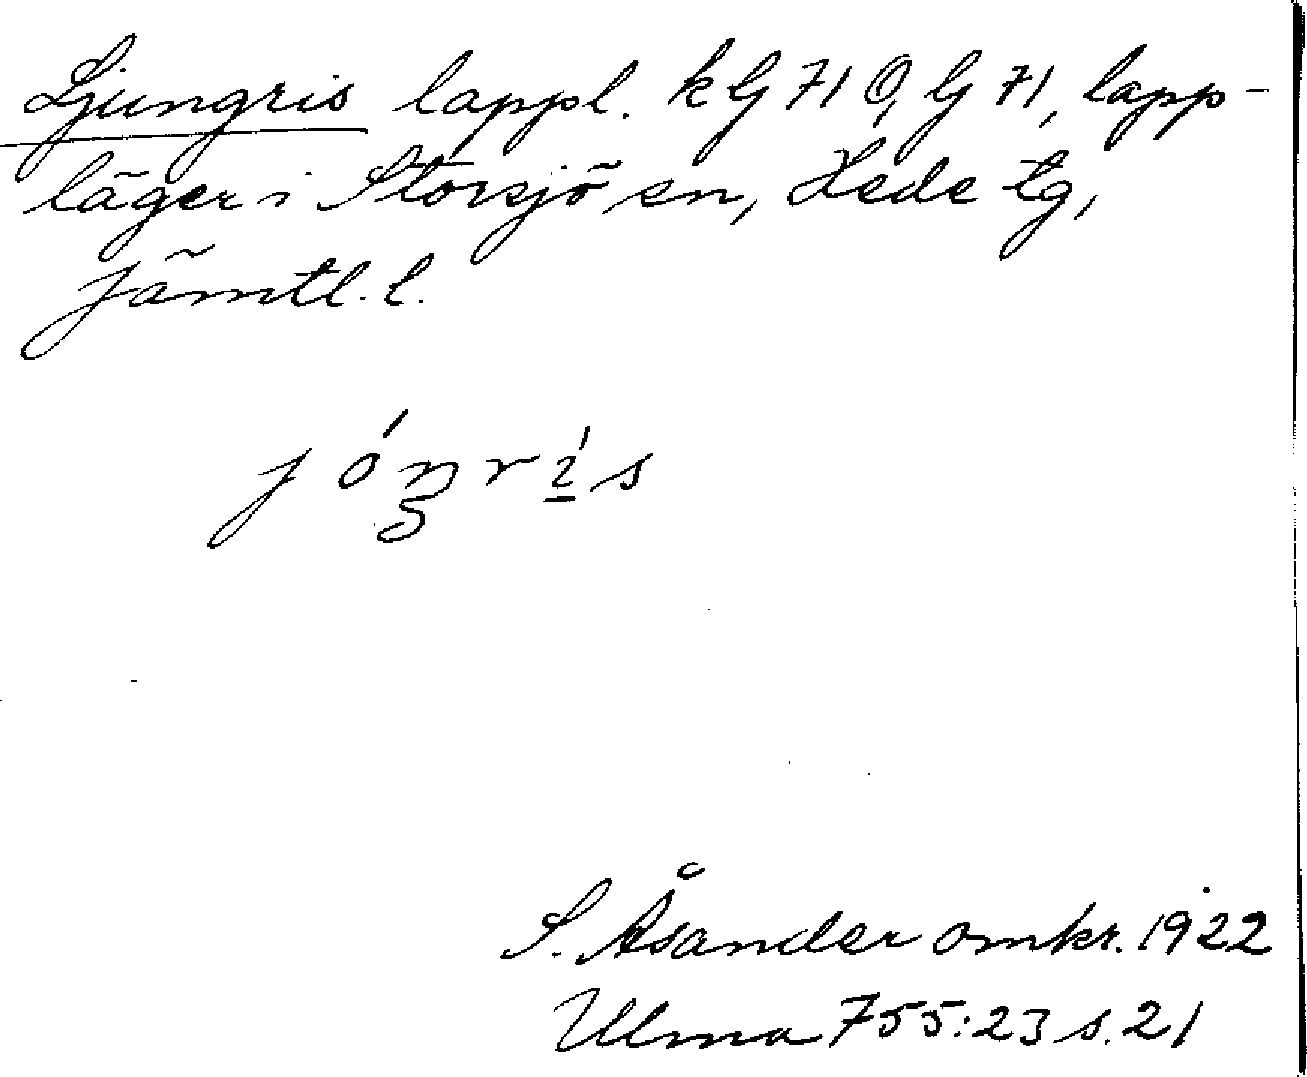 Ljungris lappl. k G 71 Ö, G 71, lapp-
läger i Storsjö sn, Hede tg,
Jämtl. l.
jóŋrís
S. Åsander omkr. 1922
Ulma 755:23 s. 21